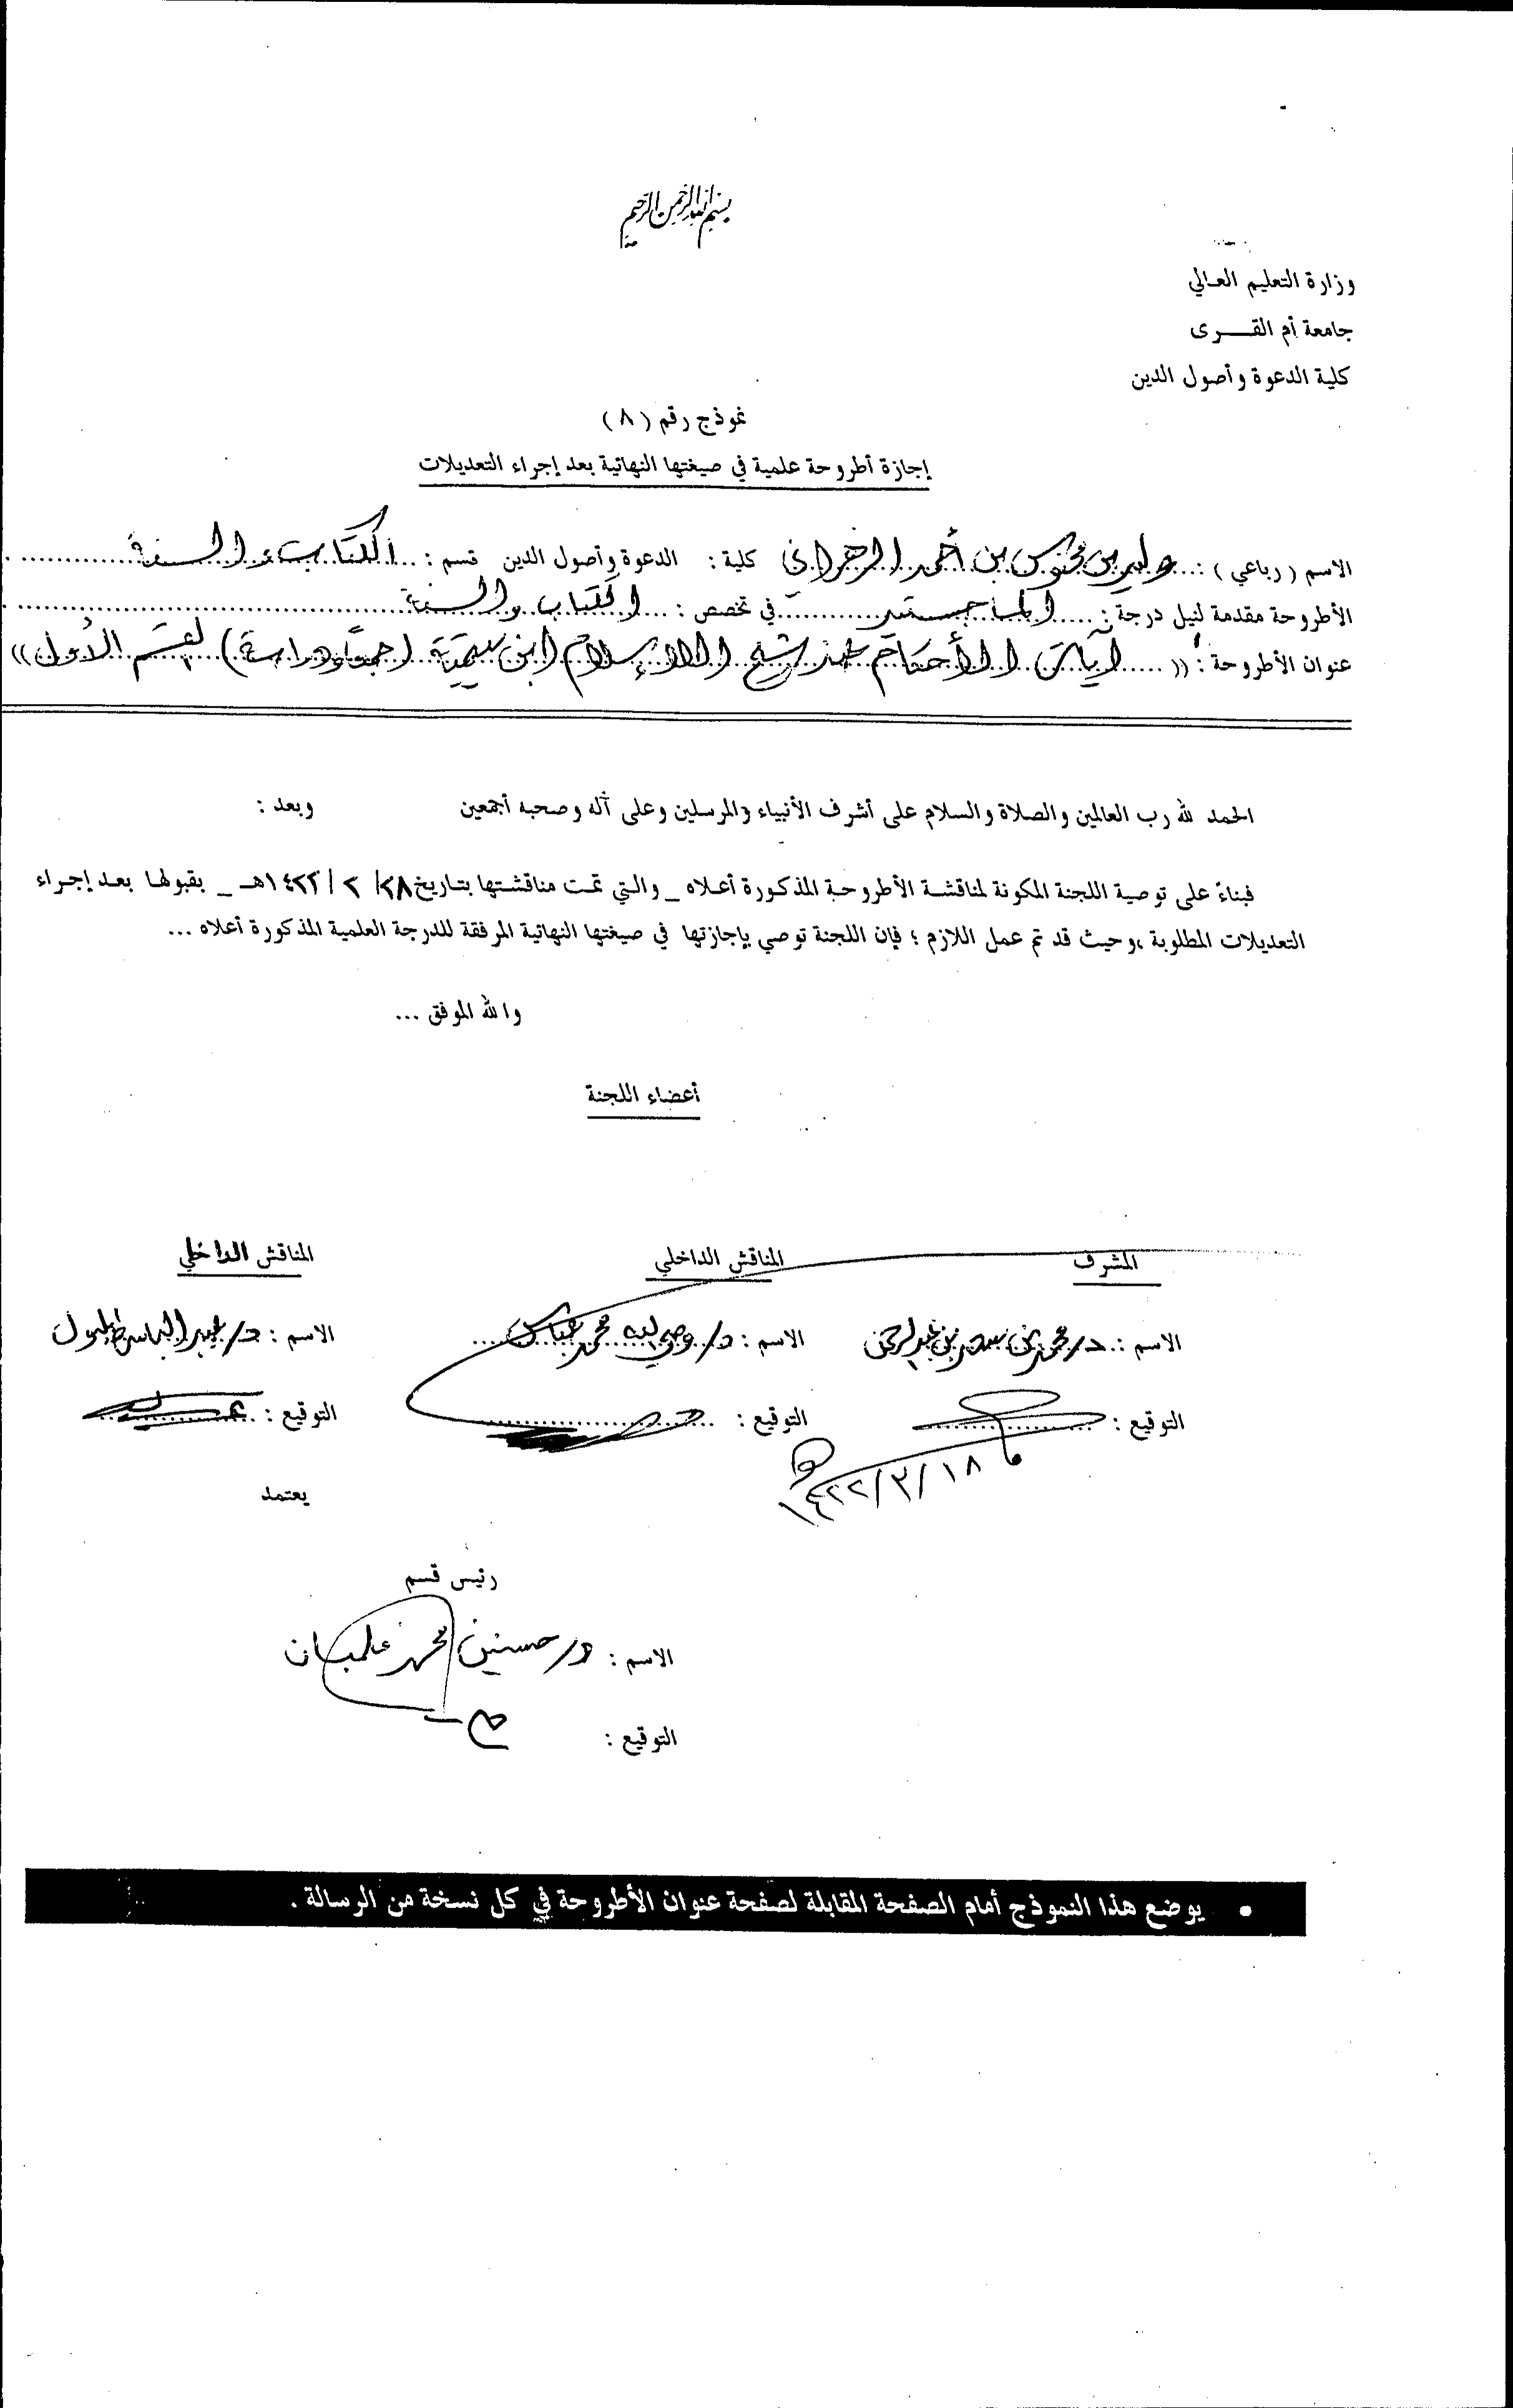 بسم الله الرحمن الرحيم
وزارة التعليم العالي
جامعة أم القــــرى
كلية الدعوة وأصول الدين
نموذج رقم (٨)
إجازة أطروحة علمية في صيغتها النهائية بعد إجراء التعديلات
الاسم (رباعي) : وليد بن بن أحمد الزهراني كلية : الدعوة وأصول الدين قسم : الكتاب والسنة
الأطروحة مقدمة لنيل درجة : الماجستير في تخصص : الكتاب والسنة
عنوان الأطروحة : (( آيات الأحكام عند شيخ الإسلام ابن تيمية (جمعاً ودراسة) القسم الأول ))
الحمد لله رب العالمين والصلاة والسلام على أشرف الأنبياء والمرسلين وعلى آله وصحبه أجمعين وبعد :
فبناءً على توصية اللجنة المكونة لمناقشة الأطروحة المذكورة أعلاه _ والتي تمت مناقشتها بتاريخ ٢٨/ ٢ / ١٤٢٢هـ _ بقبولها بعد إجراء
التعديلات المطلوبة ،وحيث قد تم عمل اللازم ؛ فإن اللجنة توصي بإجازتها في صيغتها النهائية المرفقة للدرجة العلمية المذكورة أعلاه ...
والله الموفق ...
أعضاء اللجنة
المشرف المناقش الداخلي المناقش الداخلي
الاسم : د/ محمد بن سعد بن عبدالرحمن الاسم : د/ وصي الله محمد عباس الاسم : د/ عبد الباسط بلبول
التوقيع : التوقيع : التوقيع :
١٤٢٢/٣/١٨ هـ
يعتمد
رئيس قسم
الاسم : د/ حسنين محمد فلمبان
التوقيع :
• يوضع هذا النموذج أمام الصفحة المقابلة لصفحة عنوان الأطروحة في كل نسخة من الرسالة .